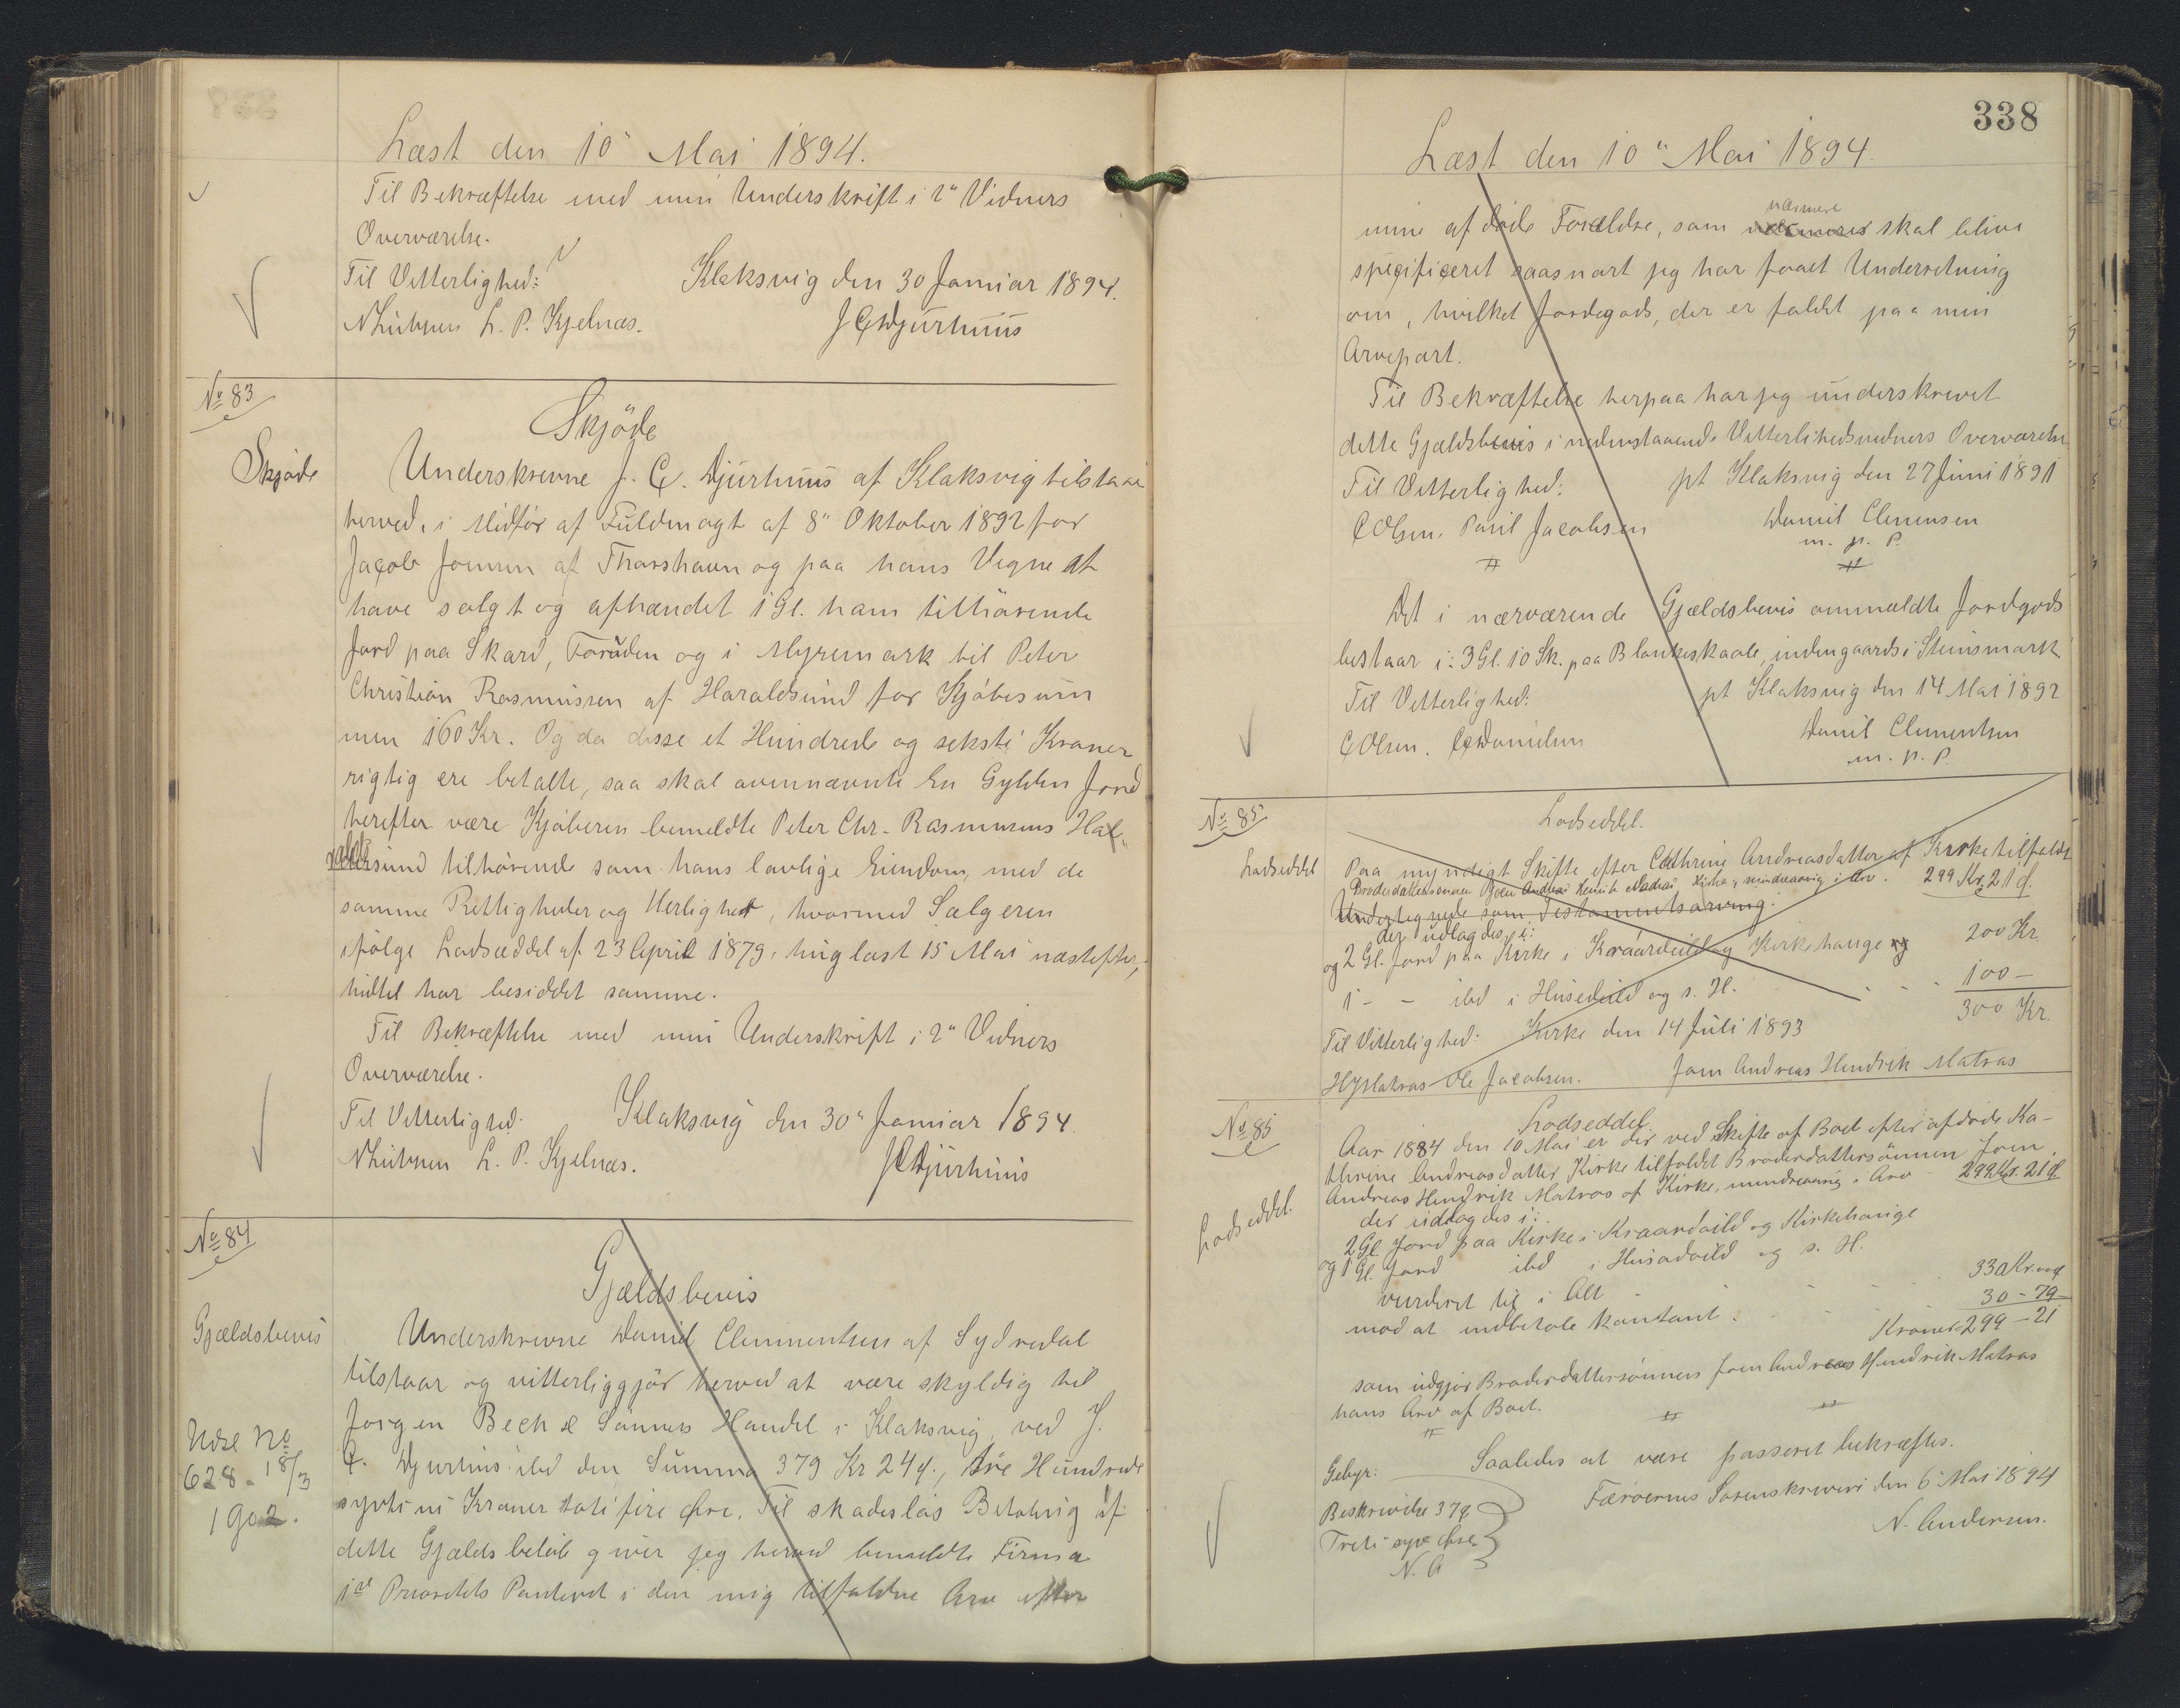 Læst den 10" Mai 1894.
Til Bekræftelse med min Underskrift i 2" Vidners
Overværelse.
Til Vitterlighed: Klaksvig den 30 Januar 1894.
L. P. Kjelnæs. J C Djurhuus
No 83
Skjöde
Skjöde
Underskrevne J. C. Djurhuus af Klaksvig tilstaar
herved, i Midför af Fuldmagt af 8" Oktober 1892 for
Jacob Joensen af Thorshavn og paa hans Vegne at
have solgt og afhændet 1 Gl. ham tilhörende
Jord paa Skard, Foruden og i Myremark til Peter
Christian Rasmussen af Haraldsund for Kjöbesum
men 160 Kr. Og da disse et Hundrede og seksti Kroner
rigtig ere betalte, saa skal ovennævnte En Gylden Jord
herefter være Kjöberen bemeldte Peter Chr. Rasmussens Ha
raldsund tilhörende som hans lovlige Eiendom, med de
samme Rettigheder og Herlighed, hvormed Sælgeren
ifölge Lodseddel af 23 April 1879, thinglæst 15 Mai næstefter,
hidtil har besiddet samme.
Til Bekræftelse med min Underskrift i 2" Vidners
Overværelse.
Til Vitterlighed: Klaksvig den 30" Januar 1894
L. P. Kjelnæs. J C Djurhuus
No 84
Gjældsbevis
Gjældsbevis
Underskrevne Daniel Clementsen af Sydredal
tilstaar og vitterliggjör herved at være skyldig til
Jörgen Bech & Sönners Handel i Klaksvig ved J.
C. Djurhuus ibd den Summa 379 Kr 24 q., tre Hundrede
sytini Kroner toti fire Øre. Til skadeslös Betaling af
dette Gjældsbelöb giver jeg herved bemeldte Firma
1ste Prioritets Panteret i den mig tilfaldne Arv efter
Udsl No
628 - 18/3
1902.
338
Læst den 10" Mai 1894
mine afdöde Forældre, som nærmere skal blive
specificeret saasnart jeg har faaet Underretning
om, hvilket Jordegods, der er faldet paa min
Arvepart.
Til Bekræftelse herpaa har jeg underskrevet
dette Gjældsbevis i nedenstaaende Vitterlihedsvidners Overværelse
Til Vitterlighed: pt Klaksvig den 27 Juni 1891
C Olsen. Poul Jacobsen Daniel Clemensen
m. p. P.
Det i nærværende Gjældsbevis ommeldte Jordgods
bestaar i: 3 Gl. 10 Sk. paa Blankeskaale, indengaards i Steinsmark.
Til Vitterlighed: pt Klaksvig den 14 Mai 1892
C Olsen. Danielsen Daniel Clementsen
m. p. P.
No 85
Lodseddel
Lodseddel.
Paa myndigt Skifte efter Cathrine Andreasdatter af Kirke tilfaldt
Broderdattersönnen Joen Andreas Henrik Matras, Kirke, mindreaarig i Arv. 299 Kr. 21 q.
Undertegnede som Testamentsarving.
der udlagdes i:
og 2 Gl. Jord paa Kirke i Kraardeild og Kirkehauge og 200 Kr.
1 - - ibd i Husedeild og s. H. 100 -
300 Kr.
Til Vitterlighed: Kirke den 14 Juli 1893
HJMatras Ole Jacobsen. Joen Andreas Hendrik Matras
No 85
Lodseddel.
Lodseddel
Aar 1884 den 10 Mai er der ved Skifte af Boet efter afdöde Ka-
thrine Andreasdatter, Kirke tilfaldet Broderdattersönnen Joen
Andreas Hendrik Matras af Kirke, mindreaarig i Arv 299 Kr. 21 q.
der udlagdes i:
2 Gl. Jord paa Kirke i Kraardeild og Kirkehauge
og 1 Gl. Jord ibd i Husadeild og s. H.
vurderet til i Alt 330 Kr. 00 q
mod at indbetale kontant: 30 - 79
Kroner 299 - 21
som udgjör Broderdattersönnens Joen Andreas Hendrik Matras
hans Arv af Boet.
Saaledes at være passeret bekræftes.
Gebyr:
Beskrivelse 37 q Færoernes Sorenskriveri den 6 Mai 1894
Treti syv Øre N. Andersen.
N. A